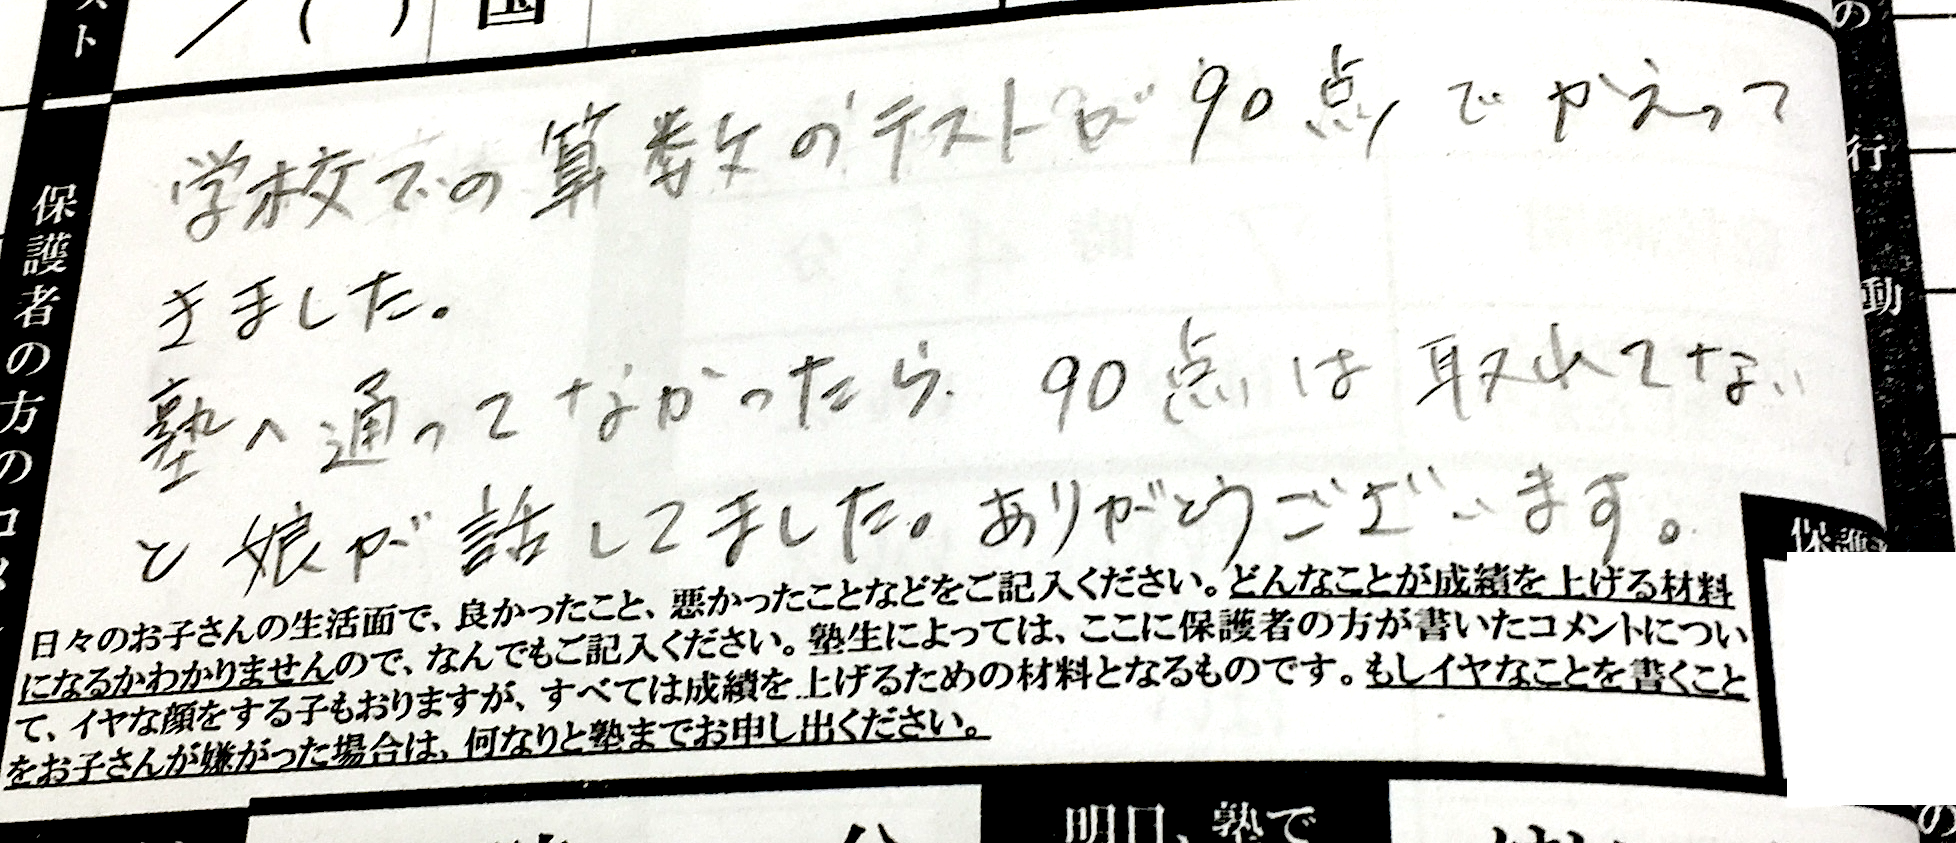 スト
国
の行動
保護者の方のコメ
学校での算数のテストが90点でかえって
きました。
塾へ通ってなかったら90点は取れてない
と娘が話してました。ありがとうございます。
保護
日々のお子さんの生活面で、良かったこと、悪かったことなどをご記入ください。どんなことが成績を上げる材料
になるかわかりませんので、なんでもご記入ください。塾生によっては、ここに保護者の方が書いたコメントについ
て、イヤな顔をする子もおりますが、すべては成績を上げるための材料となるものです。もしイヤなことを書くこと
をお子さんが嫌がった場合は、何なりと塾までお申し出ください。
明日、塾で
の